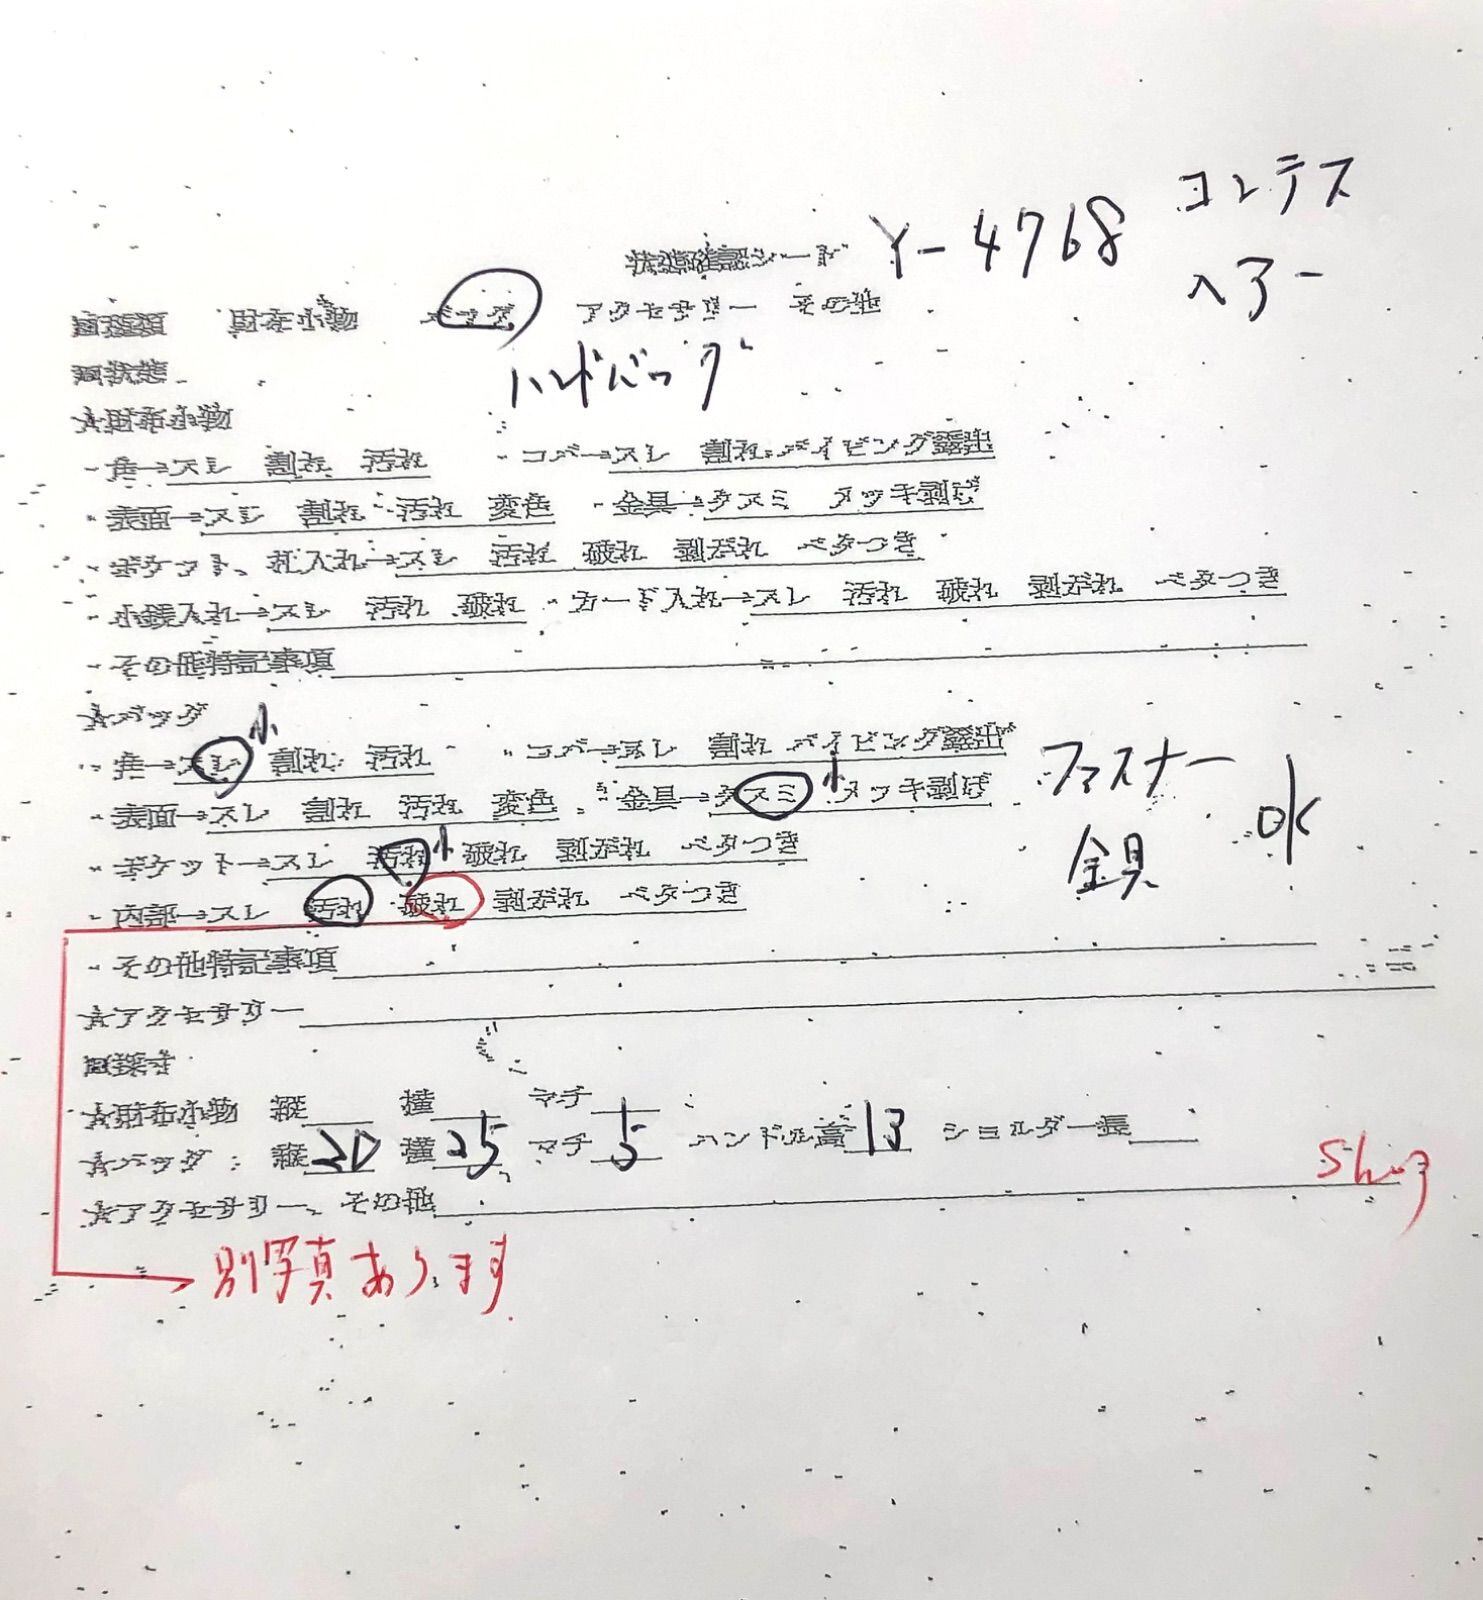 コンテス
状態確認シート Y-4768
ヘアー
■種類 財布小物 バッグ アクセサリー その他
■状態 ハンドバッグ
★財布小物
・角→スレ 割れ 汚れ ・コバ→スレ 割れ パイピング露出
・表面→スレ 割れ 汚れ 変色 ・金具→クスミ メッキ剥げ
・ポケット、札入れ→スレ 汚れ 破れ 剥がれ ベタつき
・小銭入れ→スレ 汚れ 破れ ・カード入れ→スレ 汚れ 破れ 剥がれ ベタつき
・その他特記事項
★バッグ
・角→スレ 小 割れ 汚れ ・コバ→スレ 割れ パイピング露出
・表面→スレ 割れ 汚れ 変色 ・金具→クスミ 小 メッキ剥げ
ファスナー
金具 OK
・ポケット→スレ 汚れ 小 破れ 剥がれ ベタつき
・内部→スレ 汚れ 破れ 剥がれ ベタつき
・その他特記事項
★アクセサリー
■採寸
★財布小物 縦 横 マチ
★バッグ: 縦20 横25 マチ5 ハンドル高13 ショルダー長
★アクセサリー、その他
別写真あります